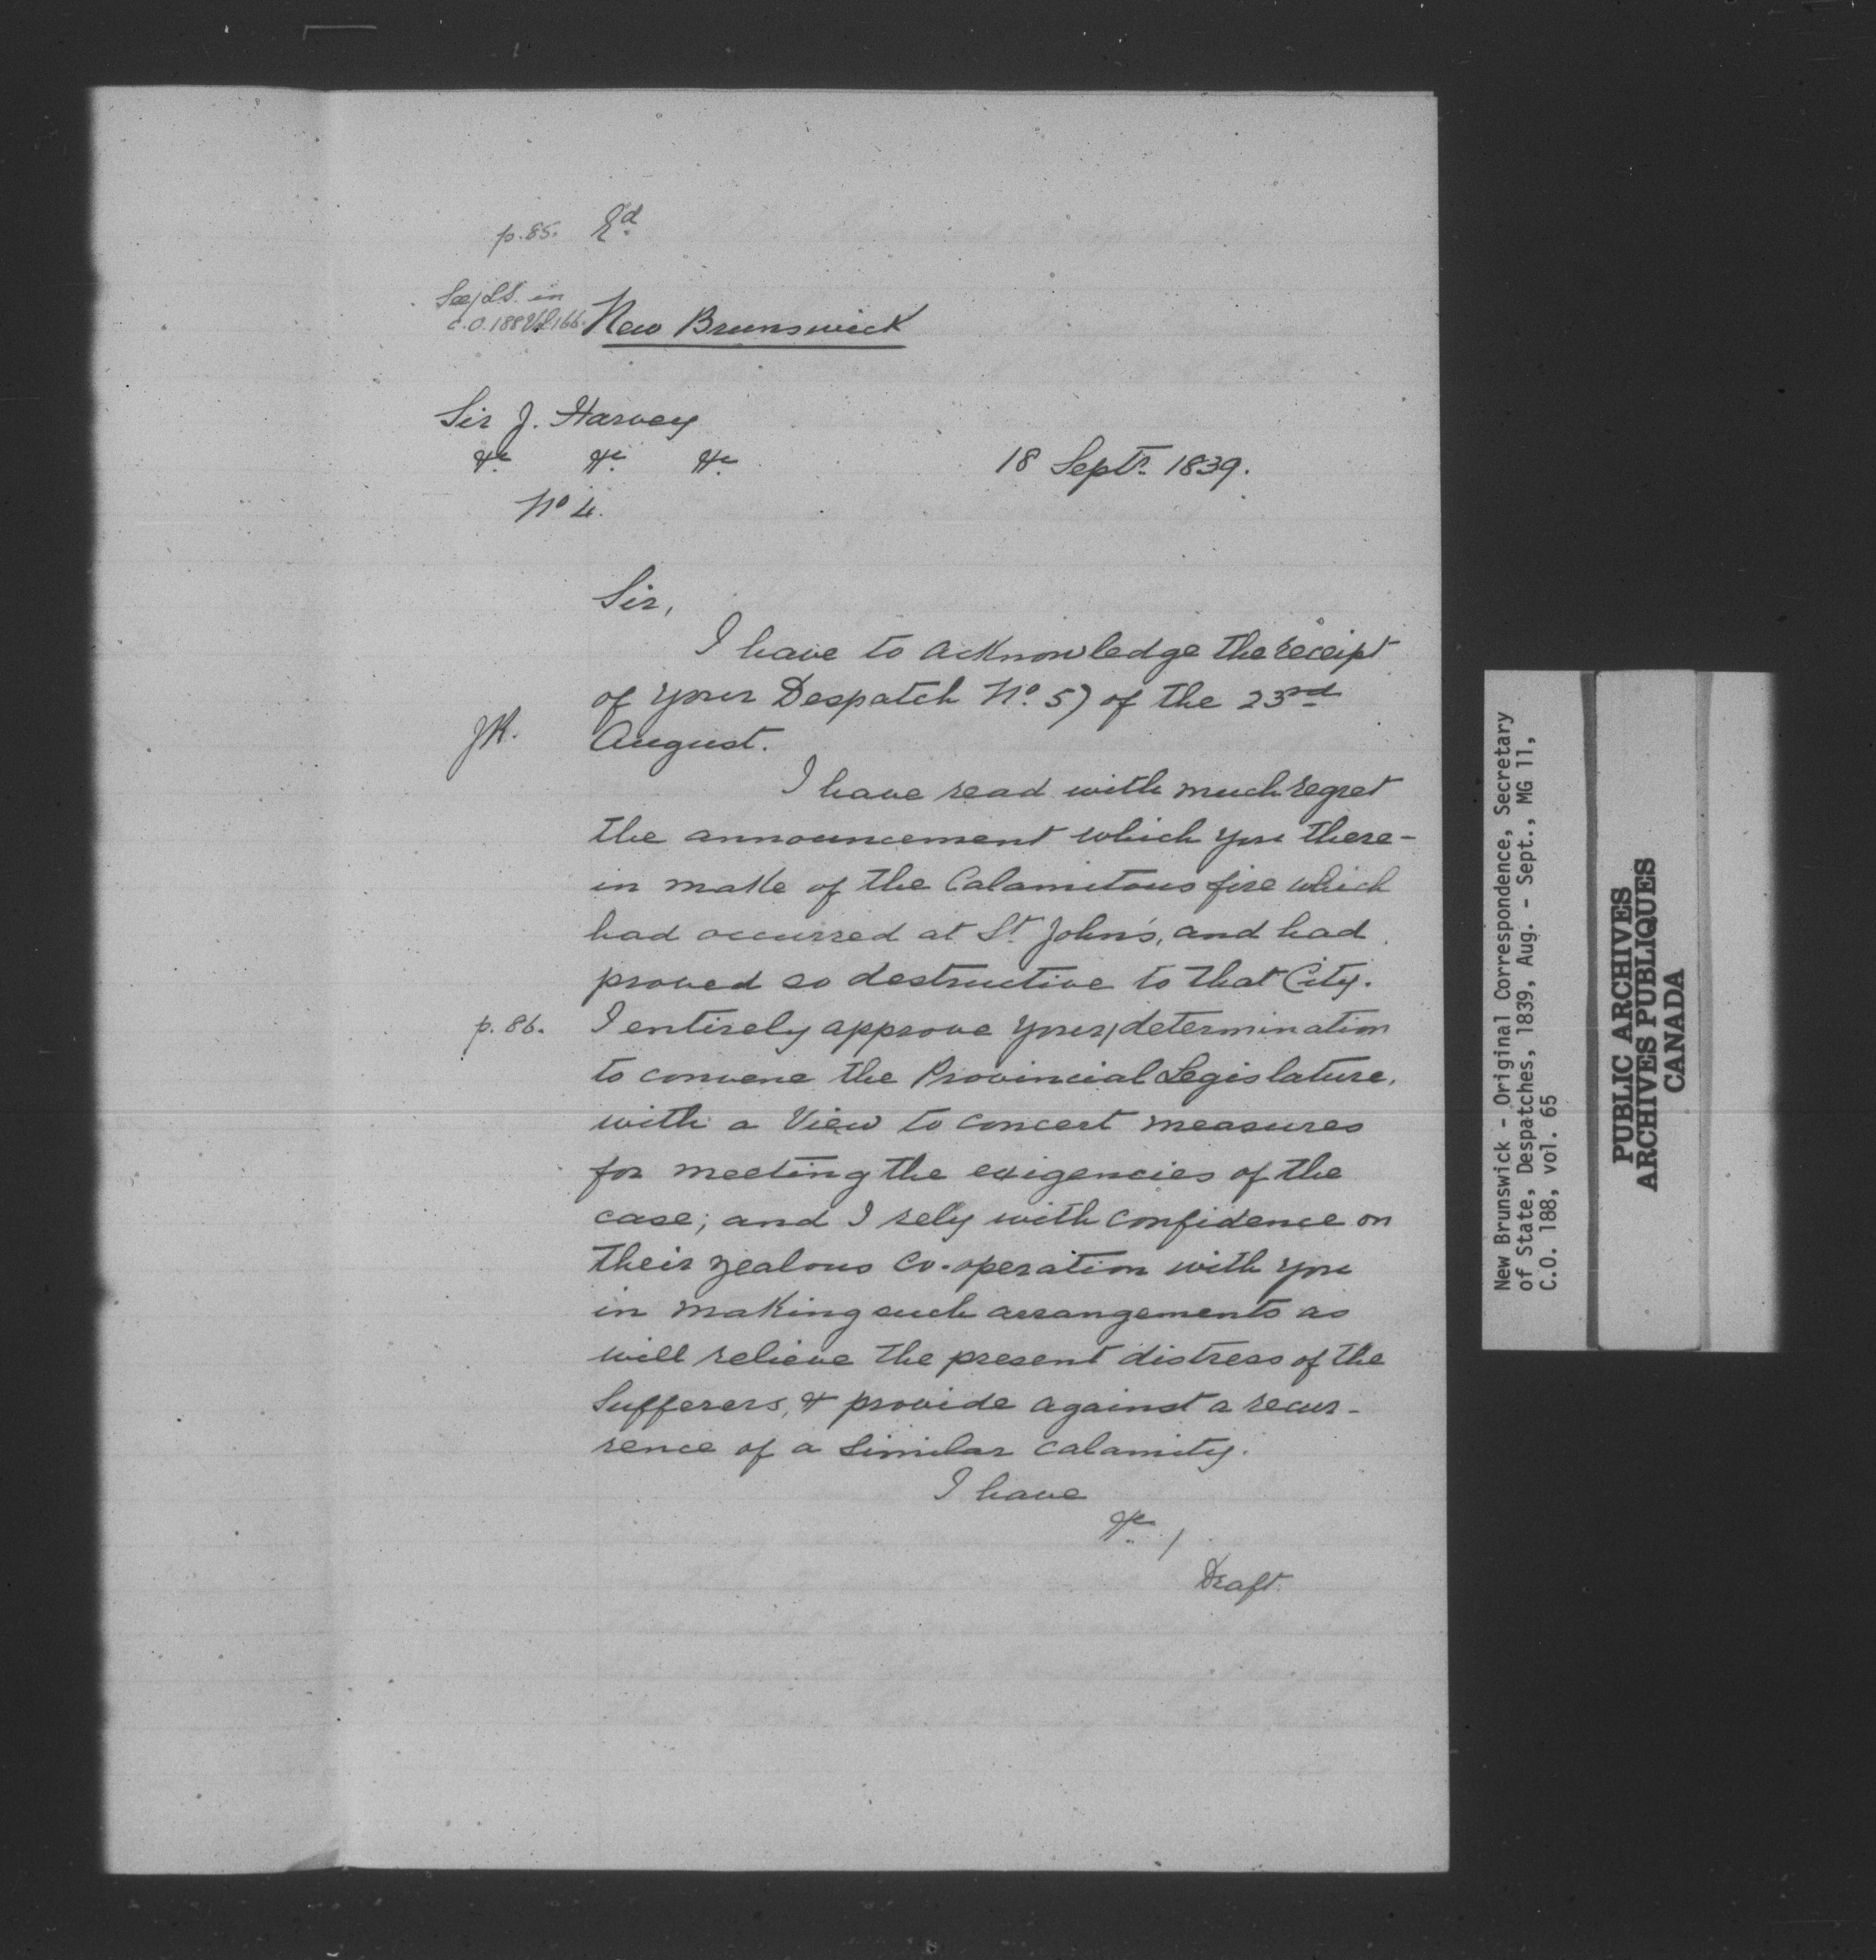 p. 85. Rd.
See/ L.S. in
C.O. 188 Vol 166. New Brunswick
Sir J. Harvey
&c &c &c
18 Septr. 1839.
No 4.
Sir,
I have to acknowledge the receipt
of your Despatch No. 57 of the 23rd
August.
I have read with much regret
the announcement which you there-
in make of the Calamitous fire which
had occurred at St. John's, and had
proved so destructive to that City.
p. 86. I entirely approve your/determination
to convene the Provincial Legislature,
with a View to concert measures
for meeting the exigencies of the
case; and I rely with confidence on
their zealous co-operation with you
in making such arrangements as
will relieve the present distress of the
Sufferers, & provide against a recur-
rence of a similar calamity.
I have
&c /
Draft.
New Brunswick - Original Correspondence, Secretary
of State, Despatches, 1839, Aug. - Sept., MG 11,
C.O. 188, vol. 65
PUBLIC ARCHIVES
ARCHIVES PUBLIQUES
CANADA